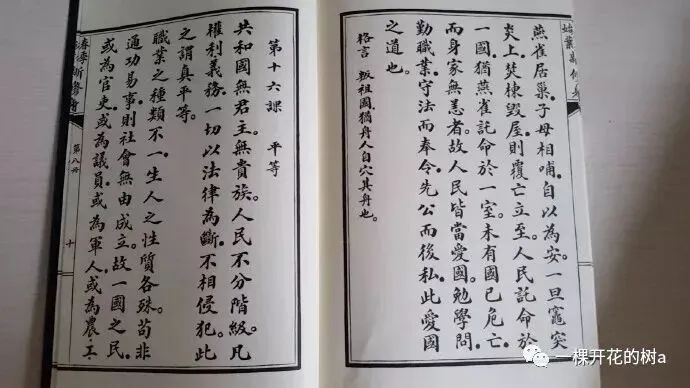 燕雀居巢。子母相哺。自以為安。一旦竈突
炎上。焚棟毀屋。則覆亡立至。人民託命於
一國。猶燕雀託命於一室。未有國已危亡。
而身家無恙者。故人民皆當愛國。勉學問。
勤職業。守法而奉令。先公而後私。此愛國
之道也。
格言 叛祖國猶舟人自穴其舟也。
第十六課 平等
共和國無君主。無貴族。人民不分階級。凡
權利義務。一切以法律為斷。不相侵犯。此
之謂真平等。
職業之種類不一。生人之性質各殊。苟非
通功易事。則社會無由成立。故一國之民。
或為官吏。或為議員。或為軍人。或為農工
第八冊
十
一棵开花的树a